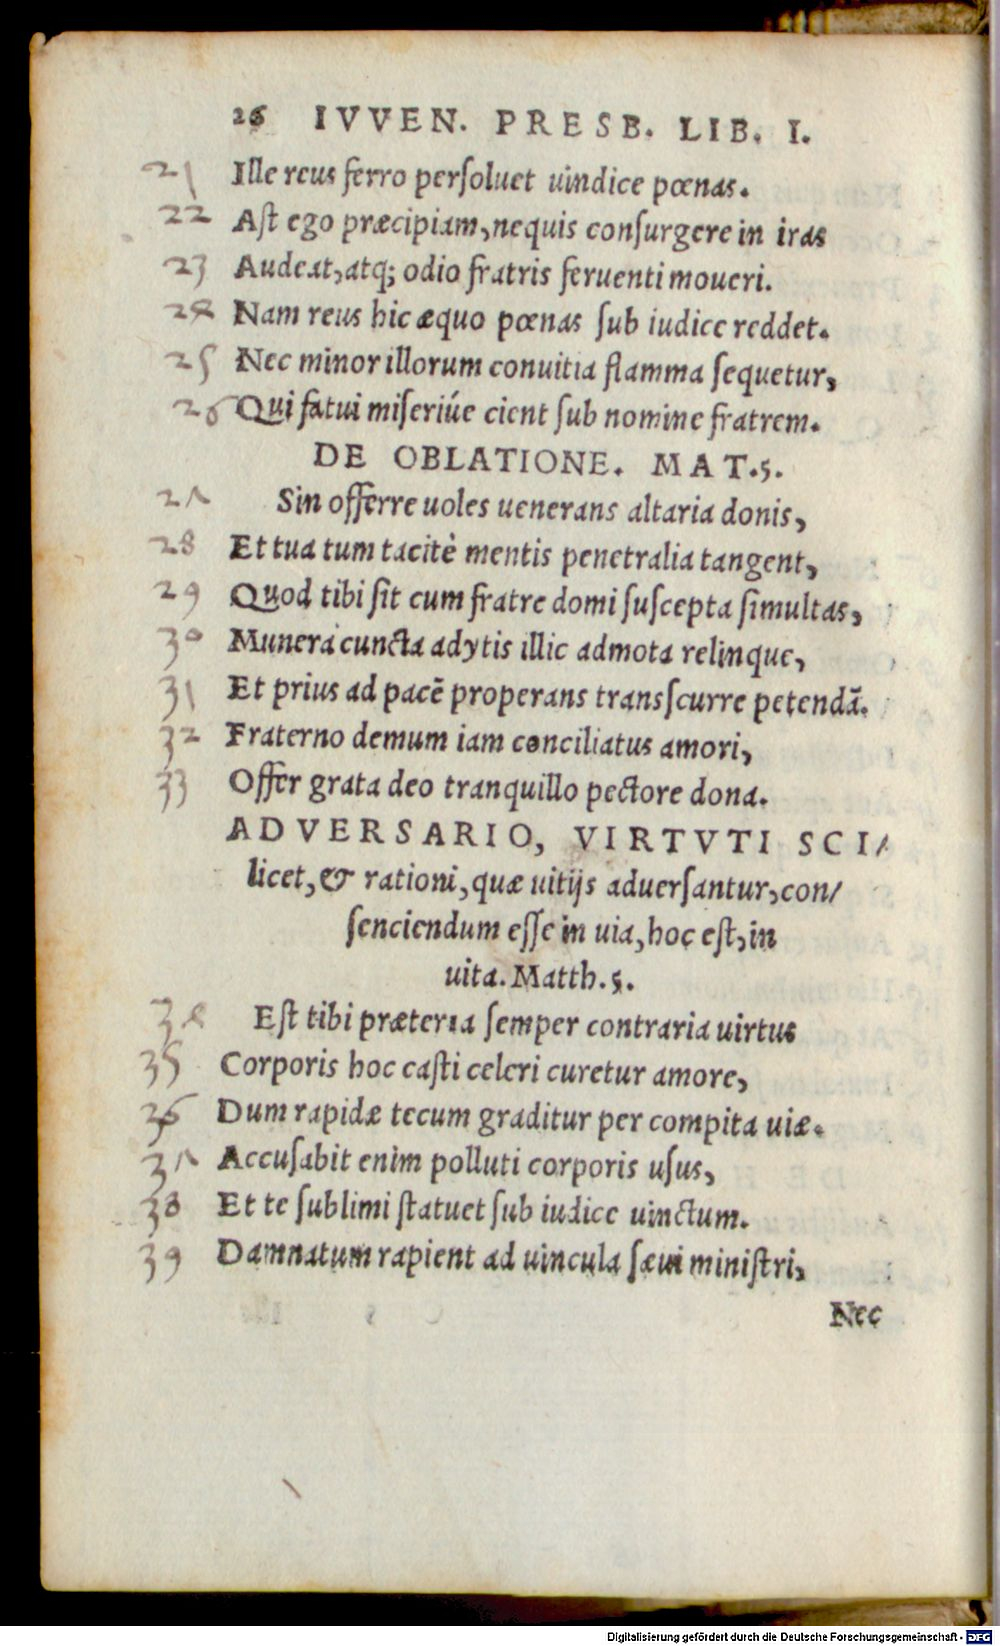 26 IVVEN. PRESB. LIB. I.
21 Ille reus ferro perſoluet uindice pœnas.
22 Aſt ego præcipiam, nequis conſurgere in iras
23 Audeat, atq; odio fratris feruenti moueri.
24 Nam reus hic æquo pœnas ſub iudice reddet.
25 Nec minor illorum conuitia flamma ſequetur,
26 Qui fatui miſeriúe cient ſub nomine fratrem.
DE OBLATIONE. MAT.5.
27 Sin offerre uoles uenerans altaria donis,
28 Et tua tum tacitè mentis penetralia tangent,
29 Quod tibi ſit cum fratre domi ſuſcepta ſimultas,
30 Munera cuncta adytis illic admota relinque,
31 Et prius ad pacē properans transſcurre petendā.
32 Fraterno demum iam conciliatus amori,
33 Offer grata deo tranquillo pectore dona.
ADVERSARIO, VIRTVTI SCI/
licet, & rationi, quæ uitijs aduerſantur, con/
ſenciendum eſſe in uia, hoc eſt, in
uita. Matth. 5.
34 Eſt tibi præterea ſemper contraria uirtus
35 Corporis hoc caſti celeri curetur amore,
36 Dum rapidæ tecum graditur per compita uiæ.
37 Accuſabit enim polluti corporis uſus,
38 Et te ſublimi ſtatuet ſub iudice uinctum.
39 Damnatum rapient ad uincula ſæui miniſtri,
Nec
Digitalisierung gefördert durch die Deutsche Forschungsgemeinschaft - DFG